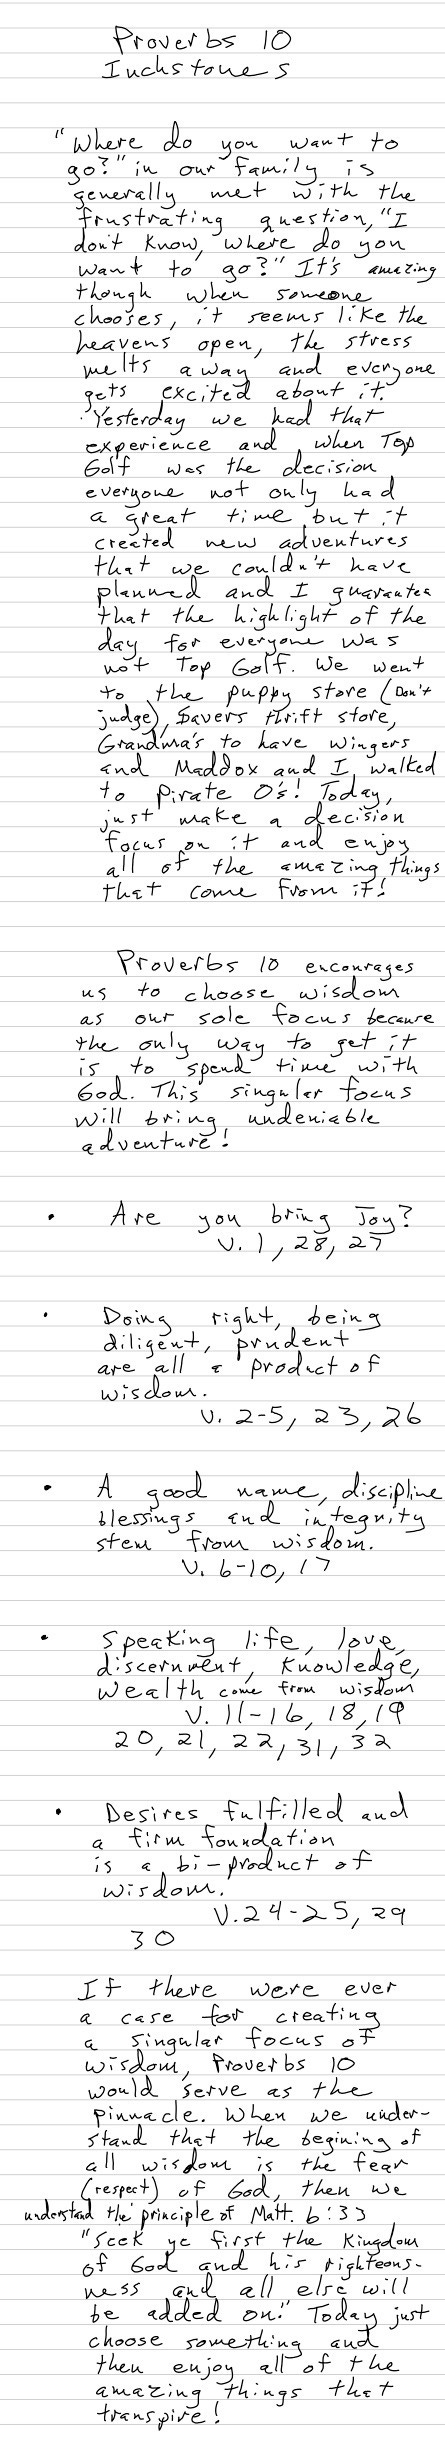 Proverbs 10
Inchstones
"Where do you want to
go?" in our family is
generally met with the
frustrating question, "I
don't know, where do you
want to go?" It's amazing
though when someone
chooses, it seems like the
heavens open, the stress
melts away and everyone
gets excited about it.
Yesterday we had that
experience and when Top
Golf was the decision
everyone not only had
a great time but it
created new adventures
that we couldn't have
planned and I guarantee
that the highlight of the
day for everyone was
not Top Golf. We went
to the puppy store (Don't
judge), Savers thrift store,
Grandma's to have Wingers
and Maddox and I walked
to Pirate O's! Today,
just make a decision
focus on it and enjoy
all of the amazing things
that come from it!
Proverbs 10 encourages
us to choose wisdom
as our sole focus because
the only way to get it
is to spend time with
God. This singular focus
will bring undeniable
adventure!
• Are you bring Joy?
V. 1, 28, 27
• Doing right, being
diligent, prudent
are all a product of
wisdom.
V. 2-5, 23, 26
• A good name, discipline
blessings and integrity
stem from wisdom.
V. 6-10, 17
• Speaking life, love,
discernment, knowledge,
wealth come from wisdom
V. 11-16, 18, 19
20, 21, 22, 31, 32
• Desires fulfilled and
a firm foundation
is a bi-product of
wisdom.
V. 24-25, 29
30
If there were ever
a case for creating
a singular focus of
wisdom, Proverbs 10
would serve as the
pinnacle. When we under-
stand that the begining of
all wisdom is the fear
(respect) of God, then we
understand the principle of Matt. 6:33
"Seek ye first the Kingdom
of God and his righteous-
ness and all else will
be added on." Today just
choose something and
then enjoy all of the
amazing things that
transpire!